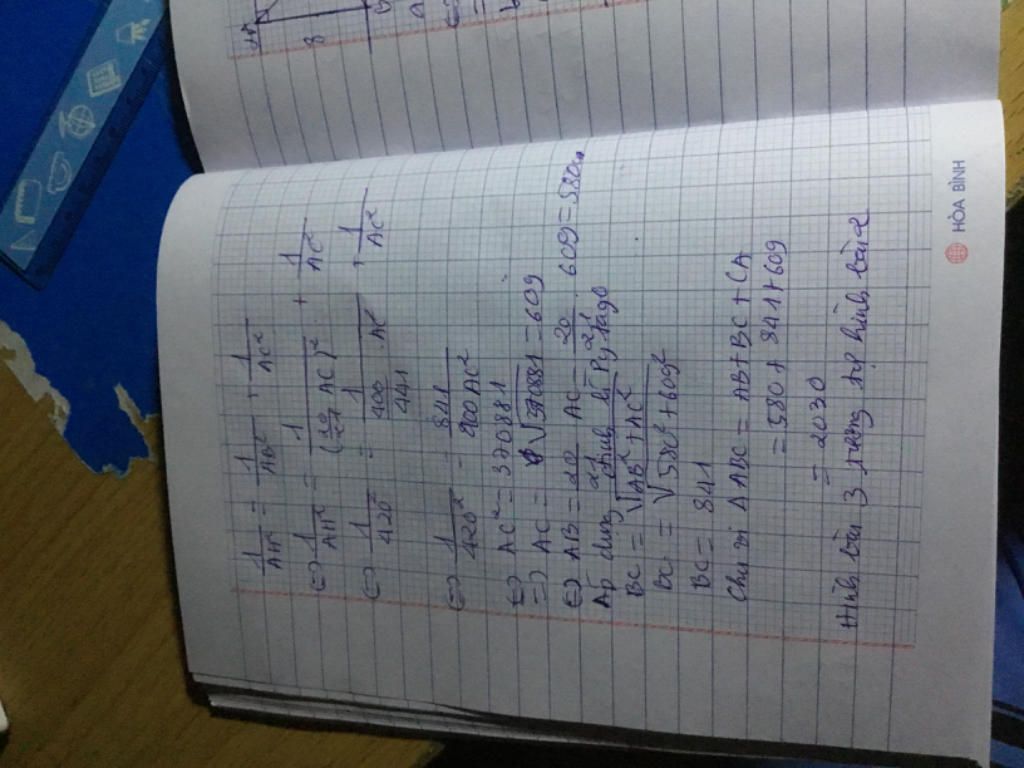 1/AH² = 1/AB² + 1/AC²
⇔ 1/AH² = 1/(20/21 AC)² + 1/AC²
⇔ 1/420² = 1/(400/441 . AC²) + 1/AC²
⇔ 1/420² = 841/400AC²
⇔ AC² = 370881
⇒ AC = √370881 = 609
⇔ AB = 20/21 AC = 20/21 . 609 = 580cm
Áp dụng định lí Pytago
BC = √AB² + AC²
BC = √580² + 609²
BC = 841
Chu vi ΔABC = AB + BC + CA
= 580 + 841 + 609
= 2030
Hình bài 3 tương tự hình bài 2
HÒA BÌNH